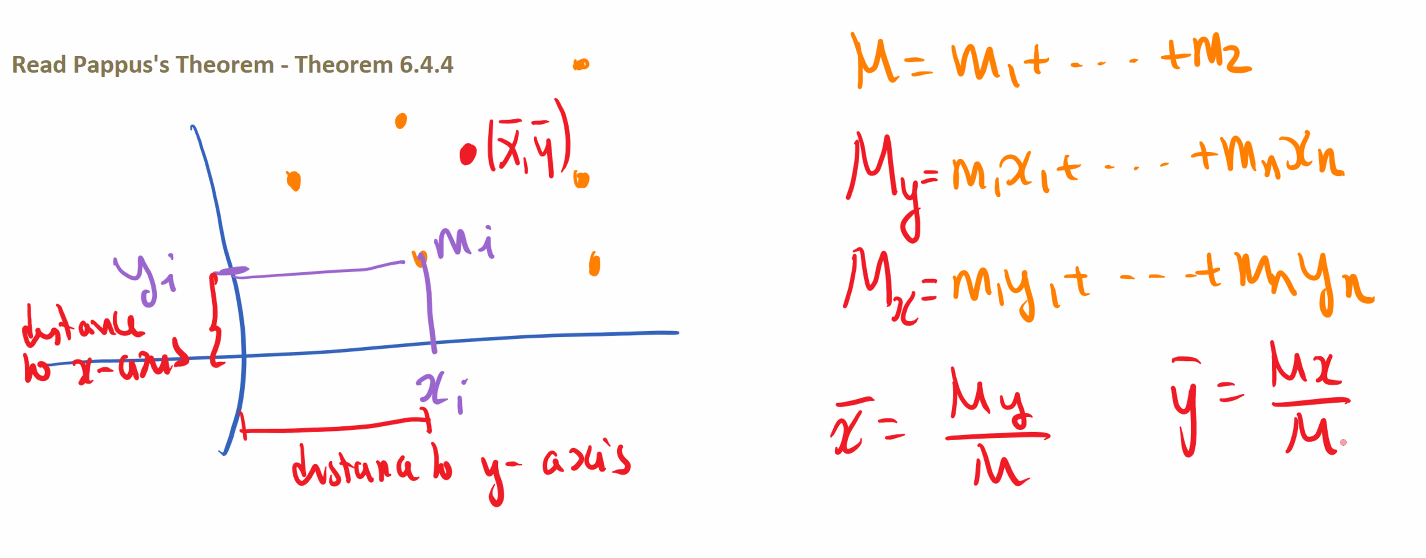 Read Pappus's Theorem - Theorem 6.4.4
(x̄, ȳ)
mᵢ
yᵢ
distance
to x-axis
xᵢ
distance to y-axis
M = m₁ + ⋯ + m₂
M_y = m₁x₁ + ⋯ + mₙxₙ
M_x = m₁y₁ + ⋯ + mₙyₙ
x̄ = M_y / M
ȳ = M_x / M